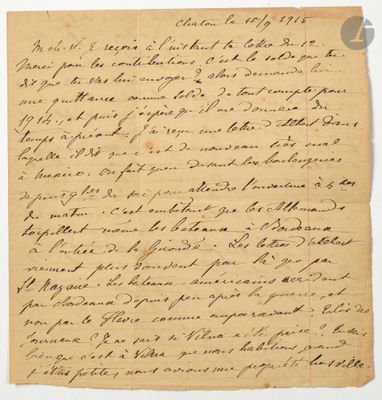 Chatou le 15/9 1915
M. ch. V. Je reçois à l'instant ta lettre du 12.
Merci pour les contributions. C'est le solde que tu
dis que tu vas lui envoyer? alors demande lui
une quittance comme solde de tout compte pour
1914, et puis j'espère qu'il me donnera du
temps à présent. J'ai reçu une lettre d'Albert dans
laquelle il dit que c'est de nouveau très mal
à Mexico. On fait queue devant les boulangeries
depuis 9 hes du soir pour attendre l'ouverture à 5 hes
du matin. C'est embêtant que les Allemands
torpillent même les bateaux à Bordeaux
à l'entrée de la Gironde. Les lettres d'Albert
viennent plus souvent par là que par
St Nazaire. Les bateaux américains
par Bordeaux depuis peu après la guerre, et
non par le Havre comme auparavant.
journaux? Je ne sais si Vilna a été prise?
que c'est à Vilna que nous habitions quand
j'étais petite, nous avions une propriété hors ville.